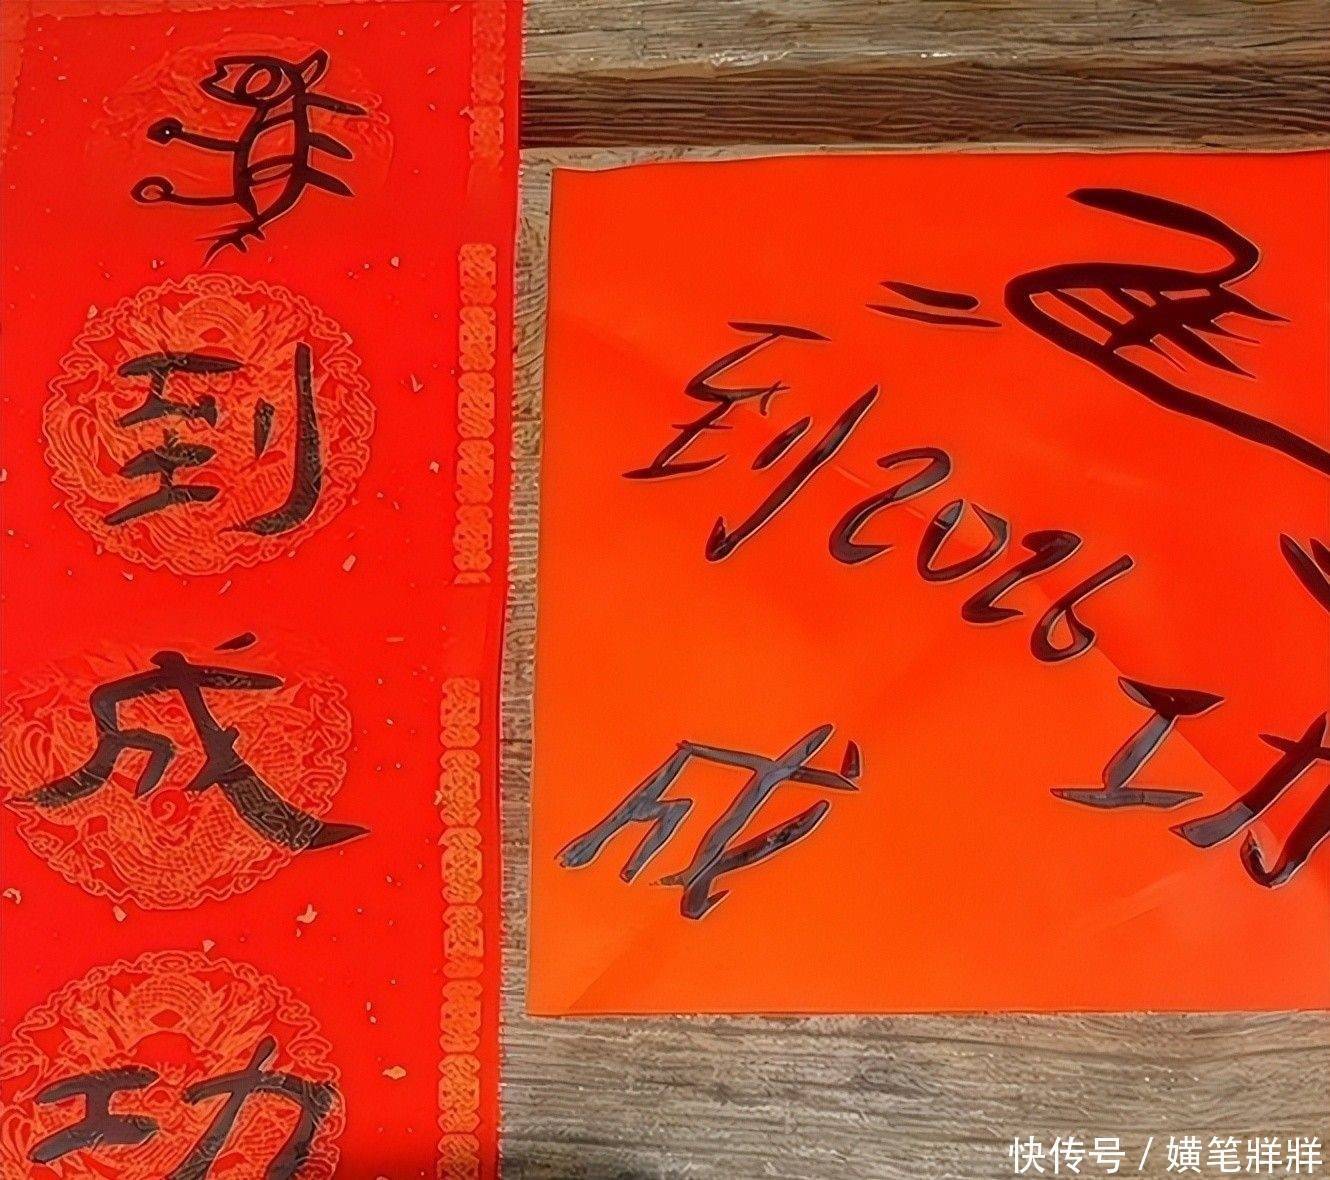 到
成
功
二
到2026
成
功
快传号 / 嫹笔牂牂